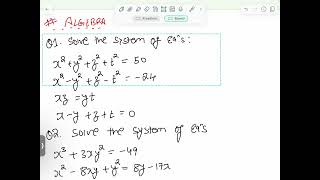 ## ALGEBRA
Q1. Solve the system of Eqⁿs:
x² + y² + z² + t² = 50
x² - y² + z² - t² = -24
xz = yt
x - y + z + t = 0
Q2. Solve the system of Eqⁿs
x³ + 3xy² = -49
x² - 8xy + y² = 8y - 17x